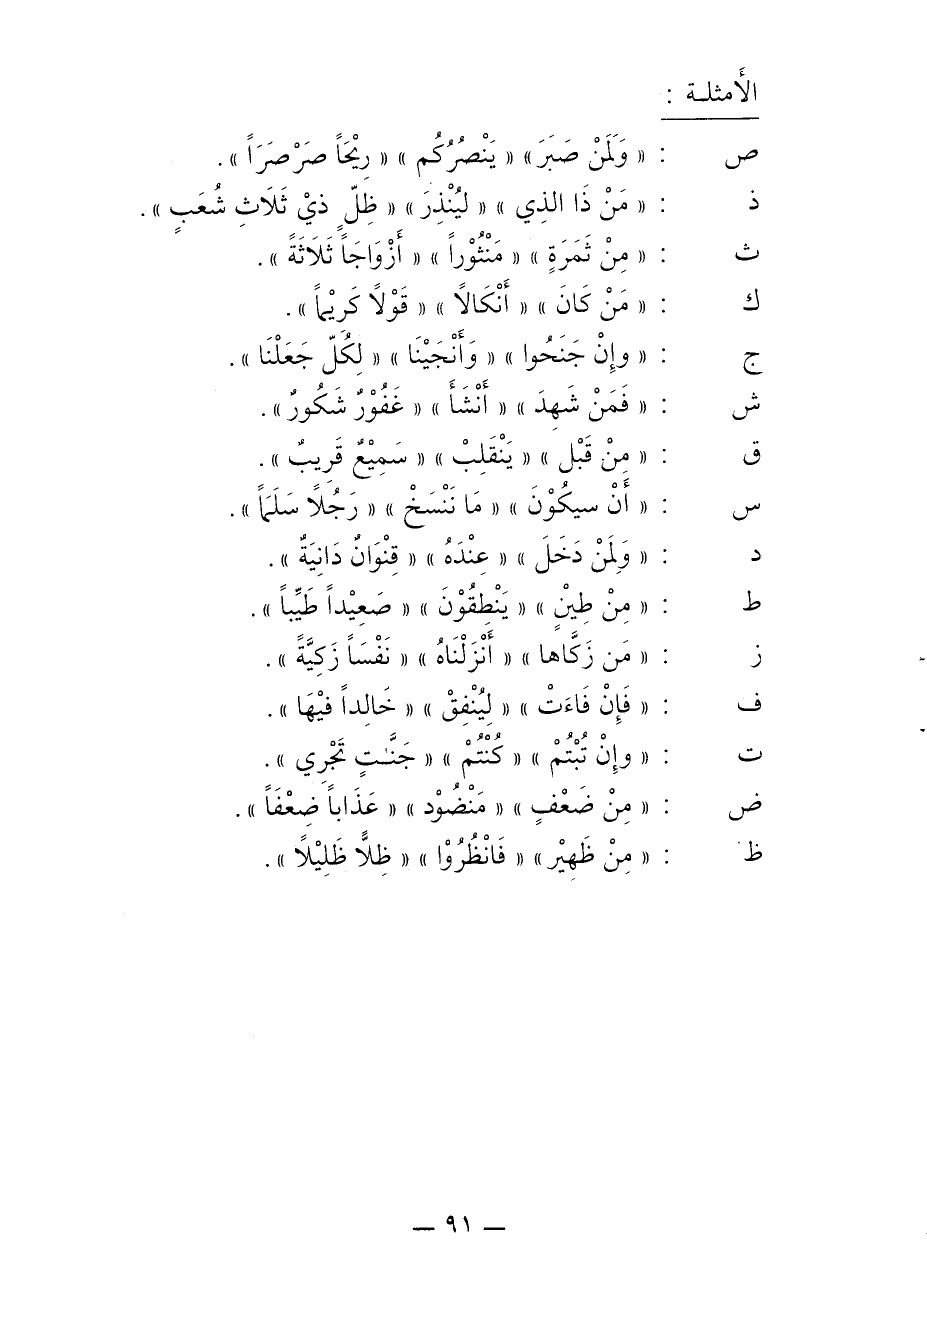 الأَمثلـة :
ص : « وَلَمَنْ صَبَرَ » « يَنْصُرْكُم » « رِيْحَاً صَرْصَرَاً » .
ذ : « مَنْ ذَا الذِي » « لِيُنْذِرَ » « ظِلّ ٍ ذيْ ثَلَاثِ شُعَبٍ » .
ث : « مِنْ ثَمَرَةٍ » « مَنْثُوْراً » « أَزْوَاجَاً ثَلَاثَةً » .
ك : « مَنْ كَانَ » « أَنْكَالًا » « قَوْلًا كَرِيْماً » .
ج : « وإِنْ جَنَحُوا » « وَأَنْجَيْنَا » « لِكُلّ جَعَلْنَا » .
ش : « فَمَنْ شَهِدَ » « أَنْشَأَ » « غَفُوْرٌ شَكُورٌ » .
ق : « مِنْ قَبْل » « يَنْقَلِبْ » « سَمِيْعٌ قَرِيبٌ » .
س : « أَنْ سيكُوْنَ » « مَا نَنْسَخْ » « رَجُلًا سَلَمَاً » .
د : « وَلَمَنْ دَخَلَ » « عِنْدَهُ » « قِنْوَانٌ دَانِيَةٌ » .
ط : « مِنْ طِيْنٍ » « يَنْطِقُوْنَ » « صَعِيْداً طَيِّباً » .
ز : « مَن زَكَّاها » « أَنْزَلْنَاهُ » « نَفْسَاً زَكِيَّةً » .
ف : « فَإِنْ فَاءَتْ » « لِيُنْفِقْ » « خَالِداً فيْهَا » .
ت : « وإِنْ تُبْتُمْ » « كُنْتُمْ » « جَنَّـٰتٍ تَجْرِي » .
ض : « مِنْ ضَعْفٍ » « مَنْضُوْد » « عَذَاباً ضِعْفَاً » .
ظ : « مِنْ ظَهِيْر » « فَانْظُرُوْا » « ظِلًّا ظَلِيْلًا » .
— ٩١ —